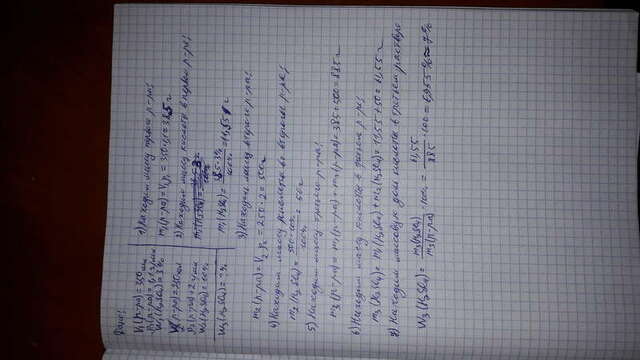 Дано:
V₁(р-ра)=350 мл
ρ₁(р-ра)=1,1 г/мл
W₁(H₂SO₄)=3%
V₂(р-ра)=250 мл
ρ₂(р-ра)=2 г/мл
W₂(H₂SO₄)=10%
W₃(H₂SO₄)=?%
1) Находим массу первого р-ра:
m₁(р-ра)=V₁ρ₁=350·1,1=385 г
2) Находим массу кислоты в первом р-ре:
m₁(H₂SO₄)=
m₁(H₂SO₄)=385·3%/100%=11,55 г
3) Находим массу второго р-ра:
m₂(р-ра)=V₂ρ₂=250·2=500 г
4) Находим массу кислоты во втором р-ре:
m₂(H₂SO₄)=500·10%/100%=50 г
5) Находим массу третьего р-ра:
m₃(р-ра)=m₁(р-ра)+m₂(р-ра)=385+500=885 г
6) Находим массу кислоты в третьем р-ре:
m₃(H₂SO₄)=m₁(H₂SO₄)+m₂(H₂SO₄)=11,55+50=61,55 г
7) Находим массовую долю кислоты в третьем растворе
W₃(H₂SO₄)=m₃(H₂SO₄)/m₃(р-ра)·100%=61,55/885·100=6,955%≈7%